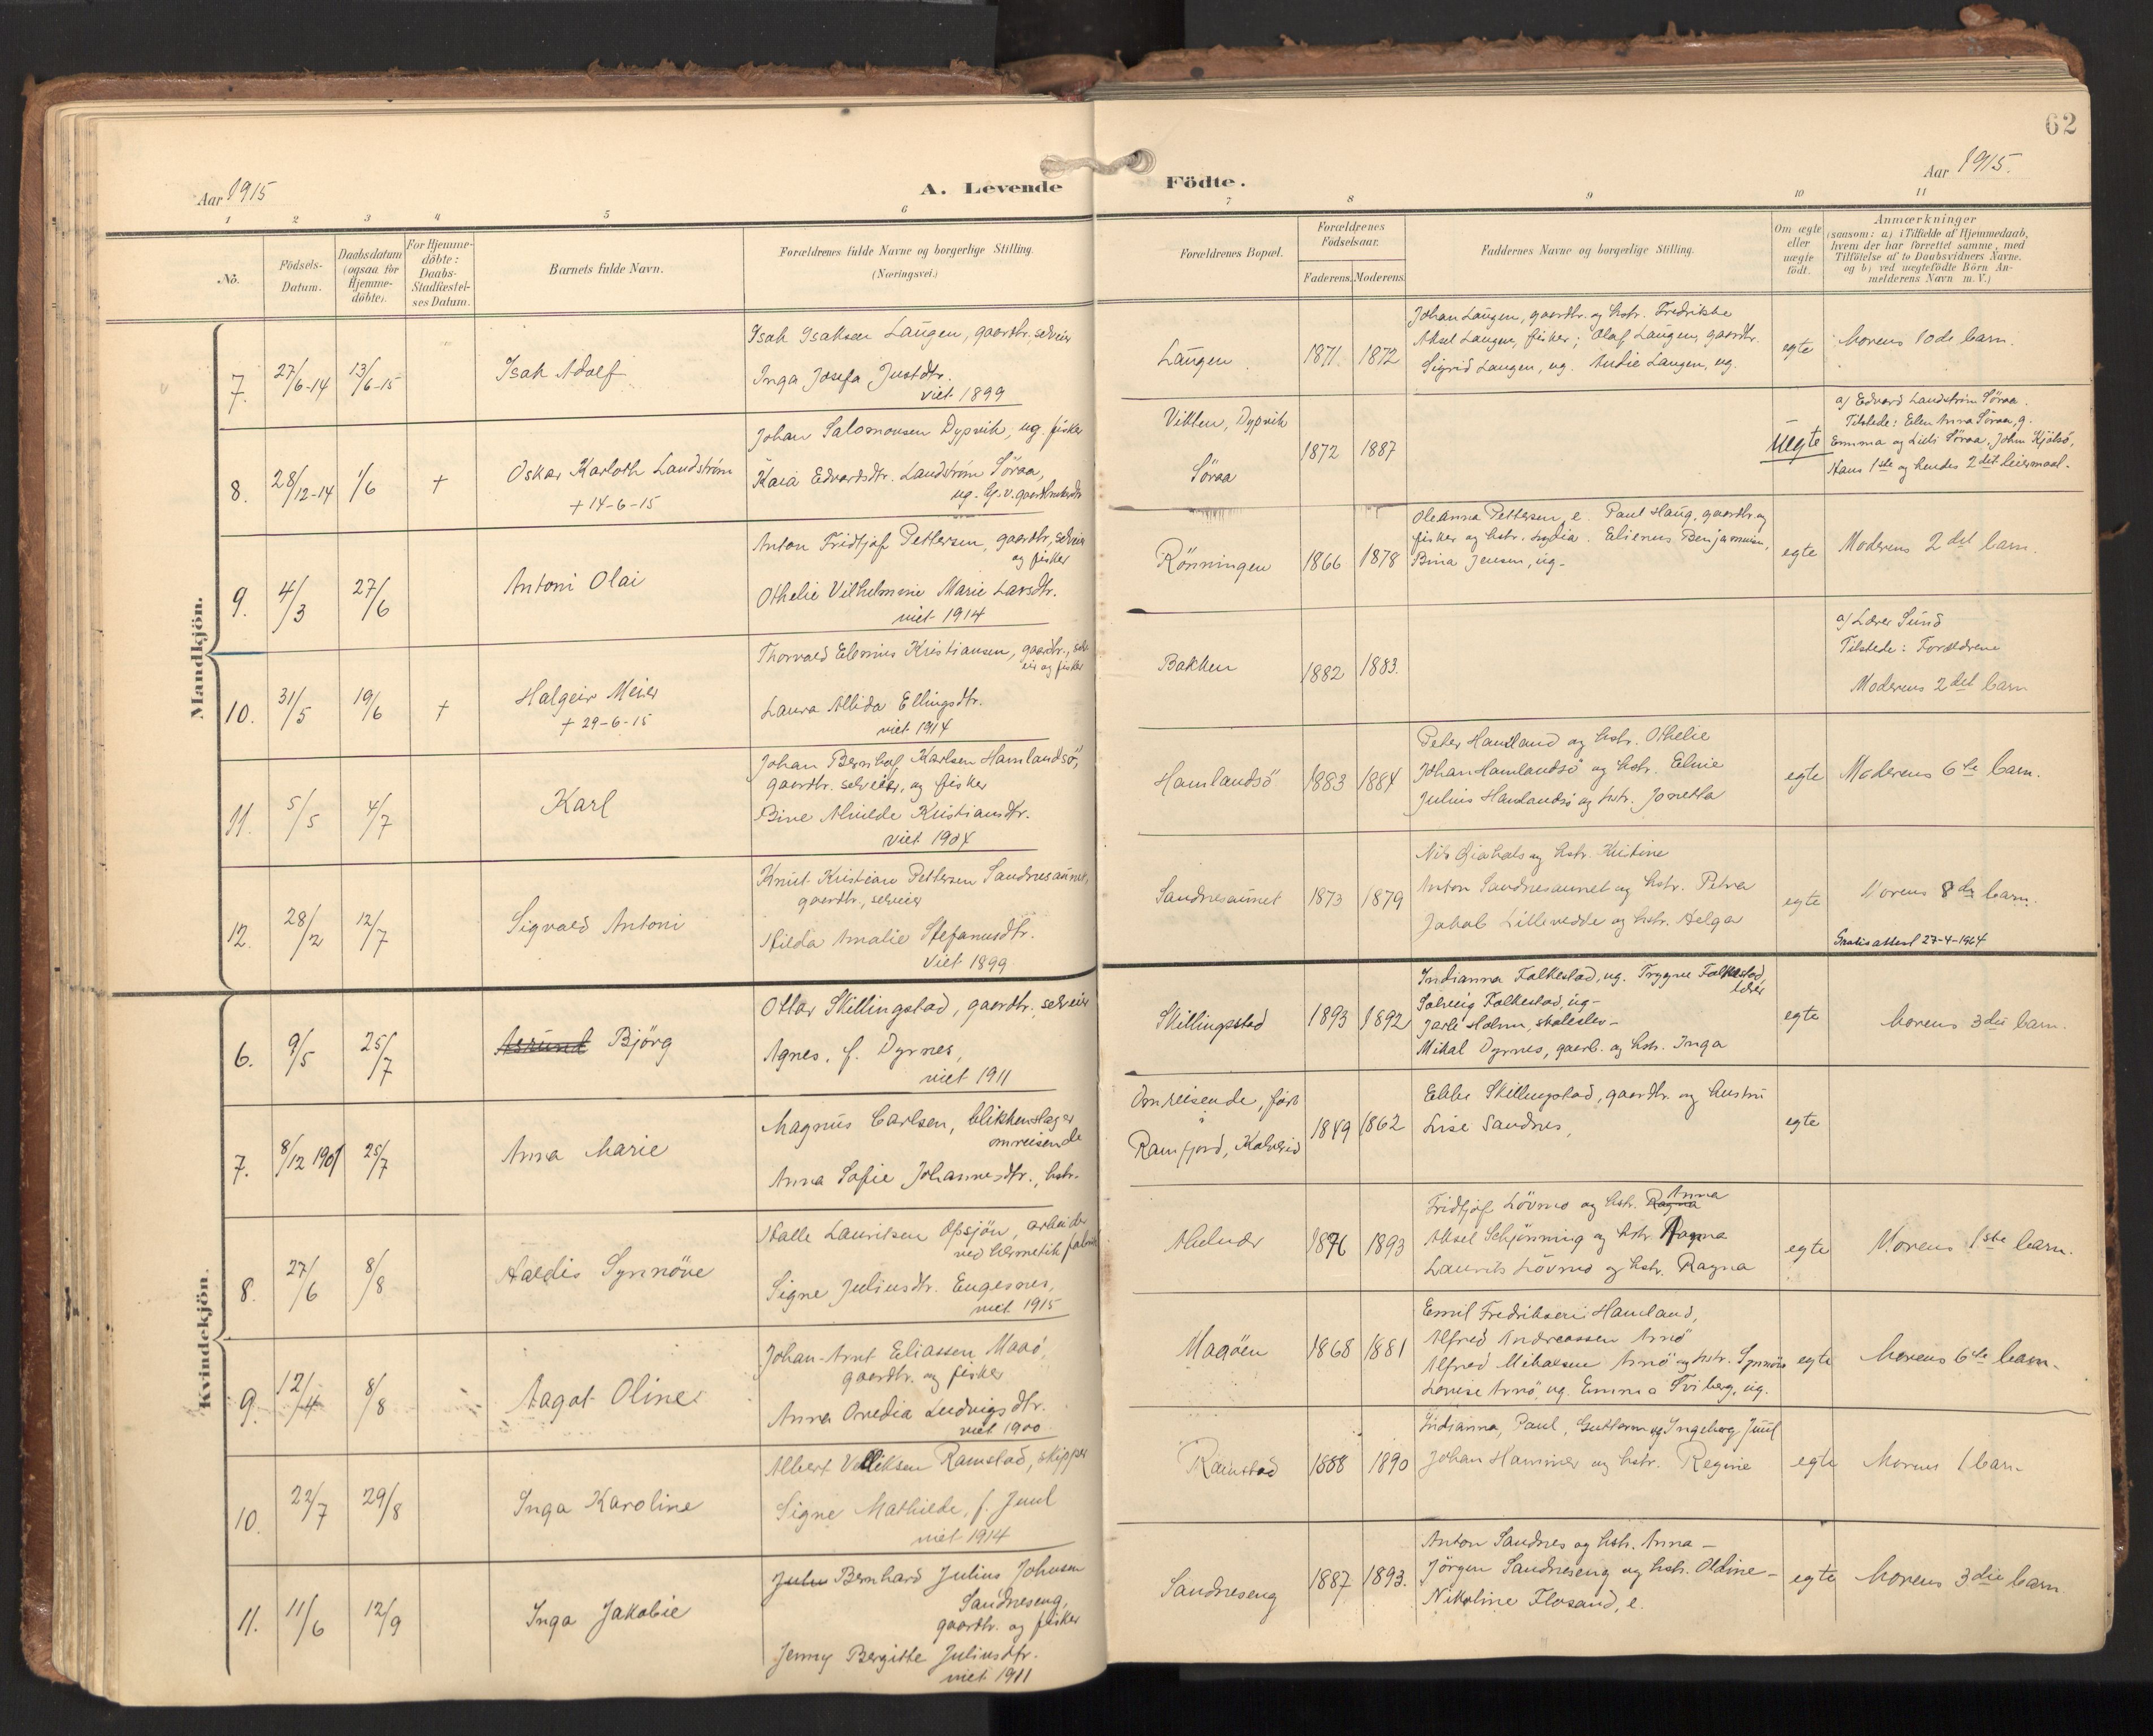 62
Aar 1915
A. Levende
Födte.
Aar 1915.
1 2 3 4 5 6 7 8 9 10 11
No.
Födsels-
Datum.
Daabsdatum
(ogsaa for
Hjemme-
döbte).
For Hjemme-
döbte:
Daabs-
Stadfæstel-
ses Datum.
Barnets fulde Navn.
Forældrenes fulde Navne og borgerlige Stilling.
(Næringsvei.)
Forældrenes Bopæl.
Forældrenes
Födselsaar.
Faderens. Moderens.
Faddernes Navne og borgerlige Stilling.
Om ægte
eller
uægte
födt.
Anmærkninger
(saasom: a) i Tilfælde af Hjemmedaab,
hvem der har forrettet samme, med
Tilföielse af to Daabsvidners Navne.
og b) ved uægtefödte Börn An-
melderens Navn m. V.)
Mandkjön.
7. 27/6-14 13/6-15
Isak Adolf
Isak Isaksen Laugen, gaardbr, selveier
Inga Josefa Justdtr.
viet 1899
Laugen 1871. 1872
Johan Laugen, gaardbr. og hstr. Fredrikke
Aksel Laugen, fisker; Olaf Laugen, gaardbr.
Sigrid Laugen, ug. Andie Laugen, ug.
egte
Morens 10de barn.
8. 28/12-14 1/6 +
Oskar Karloth Landström
+ 14-6-15
Johan Salomonsen Dypvik, ug. fisker
Kaia Edvardsdtr. Landström Söraa,
Vikten, Dypvik
Söraa
1872 1887
Uegte
a) Edvard Landström Söraa.
Tilstede: Elen Anna Söraa, g.
Emma og Lilli Söraa, John Kjölsö,
Hans 1ste og hendes 2det leiermaal.
9. 4/3 27/6
Antoni Olai
Anton Fridtjof Pettersen, gaardbr, selveier
og fisker
Othelie Vilhelmine Marie Larsdtr.
viet 1914
Rönningen 1866 1878
Oleanna Pettersen, e. Paul Haug, gaardbr. og
fisker og hstr. Lydia. Elienus Benjaminsen,
Bina Jensen, ug.
egte
Moderens 2det barn.
10. 31/5 19/6 +
Halgeir Meier
+ 29-6-15
Thorvald Elenius Kristiansen, gaardbr., selv
eier og fisker
Laura Alida Ellingsdtr.
viet 1914
Bakken 1882 1883.
a) Lærer Sund
Tilstede: Forældrene
Moderens 2det barn
11. 5/5 4/7
Karl
Johan Bernhof Karlsen Hamlandsö,
gaardbr. selveier, og fisker
Bine Alvilde Kristiansdtr.
viet 1904
Hamlandsö 1883 1884
Peter Hamland og hstr. Othelie
Johan Hamlandsö og hstr. Eline
Julius Hamlandsö og hstr. Jonetta
egte
Moderens 6te barn.
12. 28/2 12/7
Sigvald Antoni
Knut Kristian Pettersen Sandnesaunet,
gaardbr., selveier
Hilda Amalie Stefanusdtr.
viet 1899
Sandnesaunet 1873 1879
Nils Gjahals og hstr. Kristine
Anton Sandnesaunet og hstr. Petra
Jakob Lillevedde og hstr. Helga
egte
Morens 8de barn.
Gratisattest 27-4-1964
Kvindekjön.
6. 9/5 25/7
Björg
Ottar Skillingstad, gaardbr., selveier
Agnes, f. Dyrnes,
viet 1911
Skillingstad 1893 1892
Indianna Falkestad, ug. Trygve Falkestad,
lærer
Solveig Falkestad, ug-
Jarle Holm, skoleelev-
Mikal Dyrnes, gaardb. og hstr. Inga
egte
Morens 3die barn.
7. 8/12 1901 25/7
Anna Marie
Magnus Carlsen, blikkenslager
omreisende
Anna Sofie Johannesdtr., hstr.
Omreisende, född
i
Ramfjord, Kolvereid
1849 1862
Ebbe Skillingstad, gaardbr. og hustru
Lise Sandnes,
egte
8. 27/6 8/8
Haldis Synnöve
Halle Lauritsen Opsjön, arbeider
ved hermetikfabrik
Signe Juliusdtr. Engesnes,
viet 1915
Abelvær 1876 1893
Fridtjof Lövmo og hstr. Ragna Anna
Aksel Schjønning og hstr. Ragna
Laurits Lövmo og hstr. Ragna
egte
Morens 1ste barn.
9. 12/4 8/8
Aagot Oline
Johan Arnt Eliassen Maaö,
gaardbr. og fisker
Anna Ovedia Ludvigsdtr.
viet 1900
Maaöen 1868 1881
Emil Fredriksen Hamland,
Alfred Andreassen Arnö
Alfred Mikalsen Arnö og hstr. Synnöve
Lovise Arnö, ug. Emma Friberg, ug.
egte
Morens 6te barn.
10. 22/7 29/8
Inga Karoline
Albert Ramstad, skipper
Signe Mathilde, f. Juul
viet 1914
Ramstad 1888 1890
Indianna, Paul, Guttorm og Ingeborg Juul
Johan Hammer og hstr. Regine
egte
Morens 1 barn.
11. 11/6 12/9
Inga Jakobie
Bernhard Julius Johnsen
Sandneseng,
gaardbr. og fisker
Jenny Bergitte Juliusdtr.
viet 1911
Sandneseng 1887 1893.
Anton Sandnes og hstr. Anna -
Jörgen Sandneseng og hstr. Oldine -
Nikoline Flosand, e.
egte
Morens 3die barn.